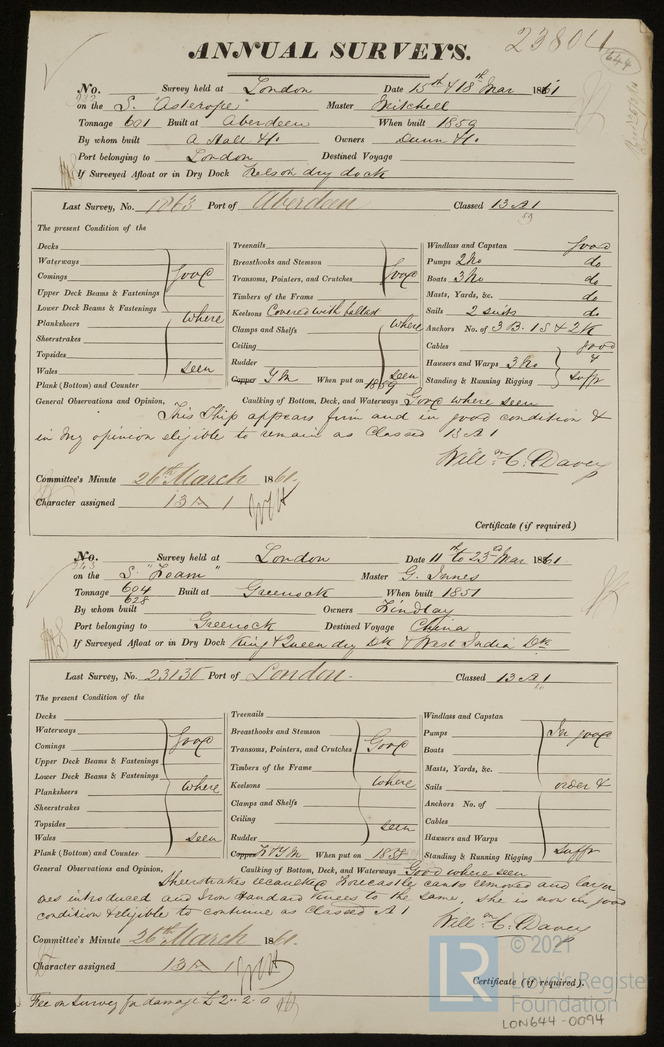 23804
644
ANNUAL SURVEYS.
No. Survey held at London Date 15th & 18th Mar 1861
on the S. "Asterope" Master Mitchell
Tonnage 601 Built at Aberdeen When built 1859
By whom built A Hall & Co. Owners Dunn & Co.
Port belonging to London Destined Voyage
If Surveyed Afloat or in Dry Dock Nelson dry dock
Last Survey, No. 1863 Port of Aberdeen Classed 13 A 1
59
The present Condition of the
Decks
Waterways
Comings
Upper Deck Beams & Fastenings
good
Lower Deck Beams & Fastenings where
Planksheers
Sheerstrakes
Topsides
Wales seen
Plank (Bottom) and Counter
Treenails
Breasthooks and Stemson
Transoms, Pointers, and Crutches good
Timbers of the Frame
Keelsons Covered with ballast
Clamps and Shelfs where
Ceiling
Rudder
seen
Copper Y M When put on 1859
Windlass and Capstan good
Pumps 2 No do
Boats 3 No do
Masts, Yards, &c. do
Sails 2 suits do
Anchors No. of 3 B. 1 S & 2 K
Cables good
Hawsers and Warps 3 No &
Standing & Running Rigging suffr
General Observations and Opinion, Caulking of Bottom, Deck, and Waterways Good where seen
This Ship appears firm and in good condition &
in my opinion eligible to remain as Classed 13 A 1
Willm. C. Davey
Committee's Minute 26th March 1861.
Character assigned 13 A 1
Certificate (if required)
No. Survey held at London Date 11th to 23rd Mar 1861
on the S. "Foam" Master G. Innes
Tonnage 604 Built at Greenock When built 1851
628
By whom built Owners Lindsay
Port belonging to Greenock Destined Voyage China
If Surveyed Afloat or in Dry Dock King & Queen dry Dk & West India Dk
Last Survey, No. 23135 Port of London. Classed 13 A 1
The present Condition of the
Decks
Waterways
Comings good
Upper Deck Beams & Fastenings
Lower Deck Beams & Fastenings
Planksheers where
Sheerstrakes
Topsides
Wales seen
Plank (Bottom) and Counter
Treenails
Breasthooks and Stemson
Transoms, Pointers, and Crutches Good
Timbers of the Frame
Keelsons where
Clamps and Shelfs
Ceiling seen
Rudder
Copper Y M When put on 1858
Windlass and Capstan
Pumps In good
Boats
Masts, Yards, &c.
Sails order &
Anchors No. of
Cables
Hawsers and Warps
Standing & Running Rigging suffr
General Observations and Opinion, Caulking of Bottom, Deck, and Waterways Good where seen
Sheerstrakes recaulked Forecastle cants removed and larger
ones introduced and Iron Standard Knees to the same, She is now in good
condition & eligible to continue as Classed A 1
Willm. C. Davey
Committee's Minute 26th March 1861.
Character assigned 13 A 1
Certificate (if required).
Fee on Survey for damage £ 2.. 2. 0
LR © 2021
Lloyd's Register
Foundation
LON644-0094